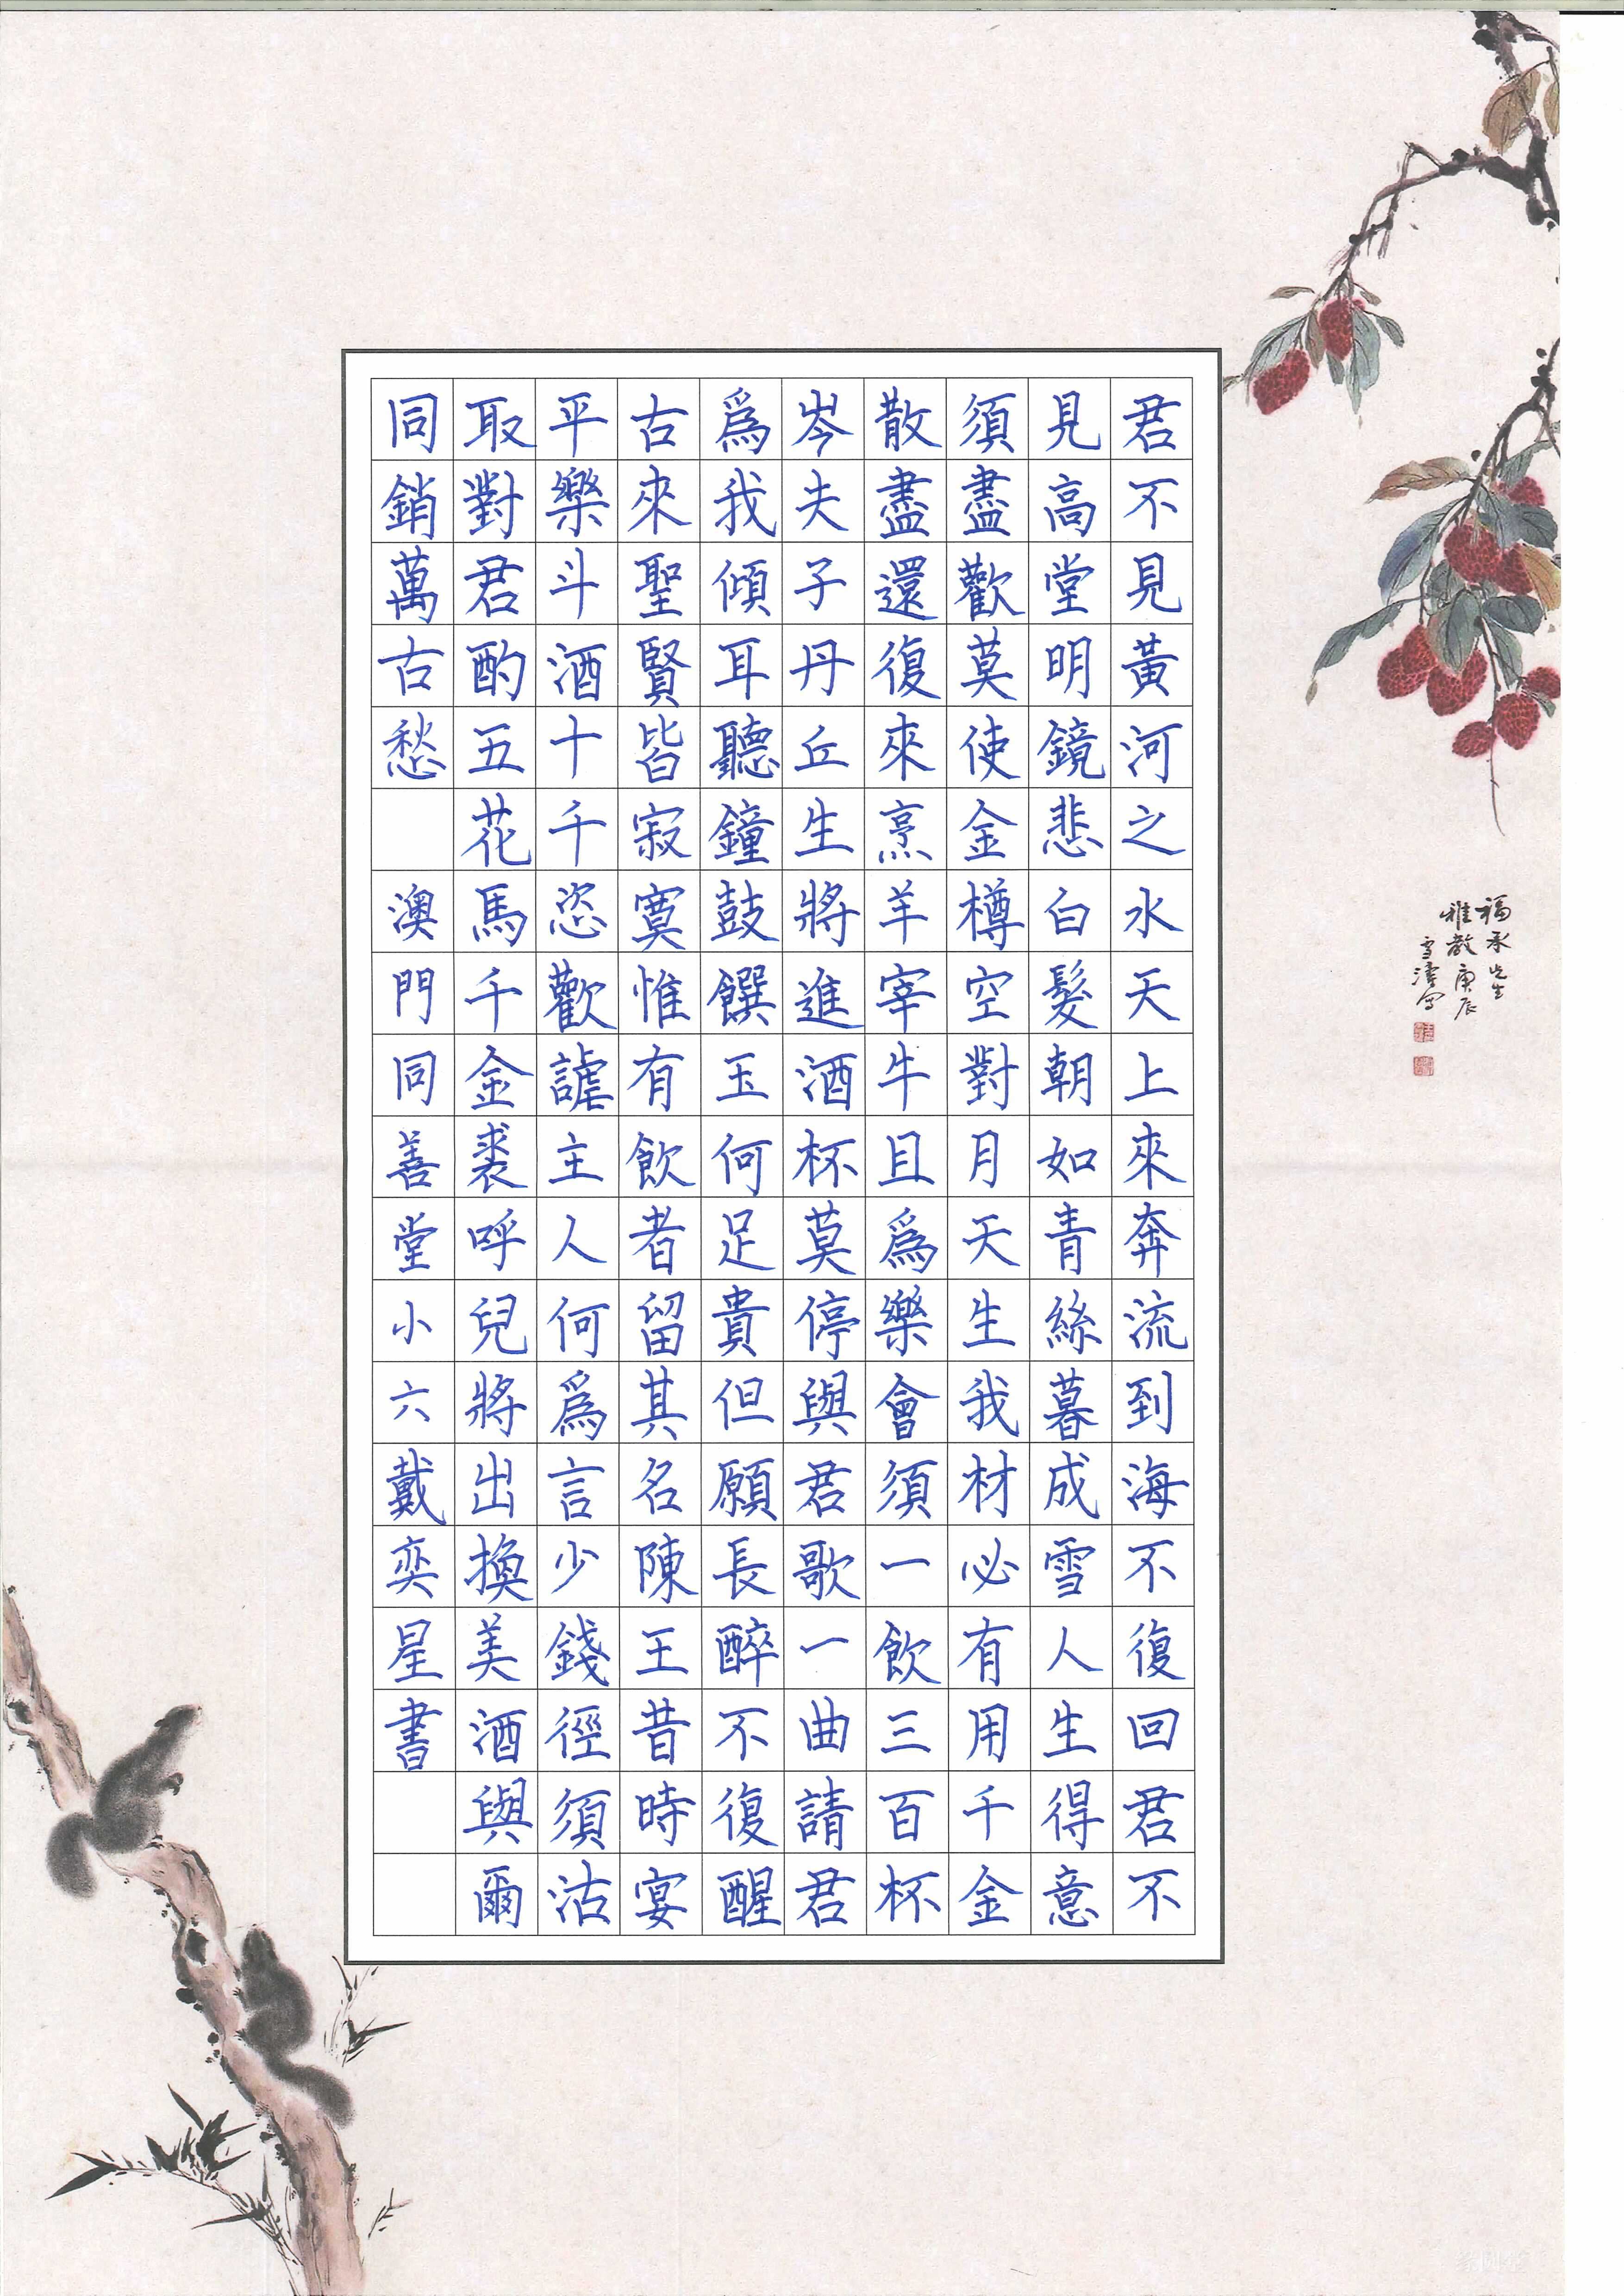 君不見黃河之水天上來奔流到海不復回君不
見高堂明鏡悲白髮朝如青絲暮成雪人生得意
須盡歡莫使金樽空對月天生我材必有用千金
散盡還復來烹羊宰牛且爲樂會須一飲三百杯
岑夫子丹丘生將進酒杯莫停與君歌一曲請君
爲我傾耳聽鐘鼓饌玉何足貴但願長醉不復醒
古來聖賢皆寂寞惟有飲者留其名陳王昔時宴
平樂斗酒十千恣歡謔主人何爲言少錢徑須沽
取對君酌五花馬千金裘呼兒將出換美酒與爾
同銷萬古愁 澳門同善堂小六戴奕星書
福承先生
雅教庚辰
雪濤寫